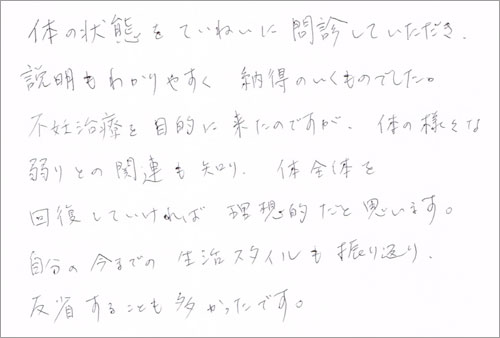 体の状態をていねいに問診していただき、
説明もわかりやすく 納得のいくものでした。
不妊治療を目的に来たのですが、体の様々な
弱りとの関連も知り、体全体を
回復していければ理想的だと思います。
自分の今までの生活スタイルも振り返り、
反省することも多かったです。